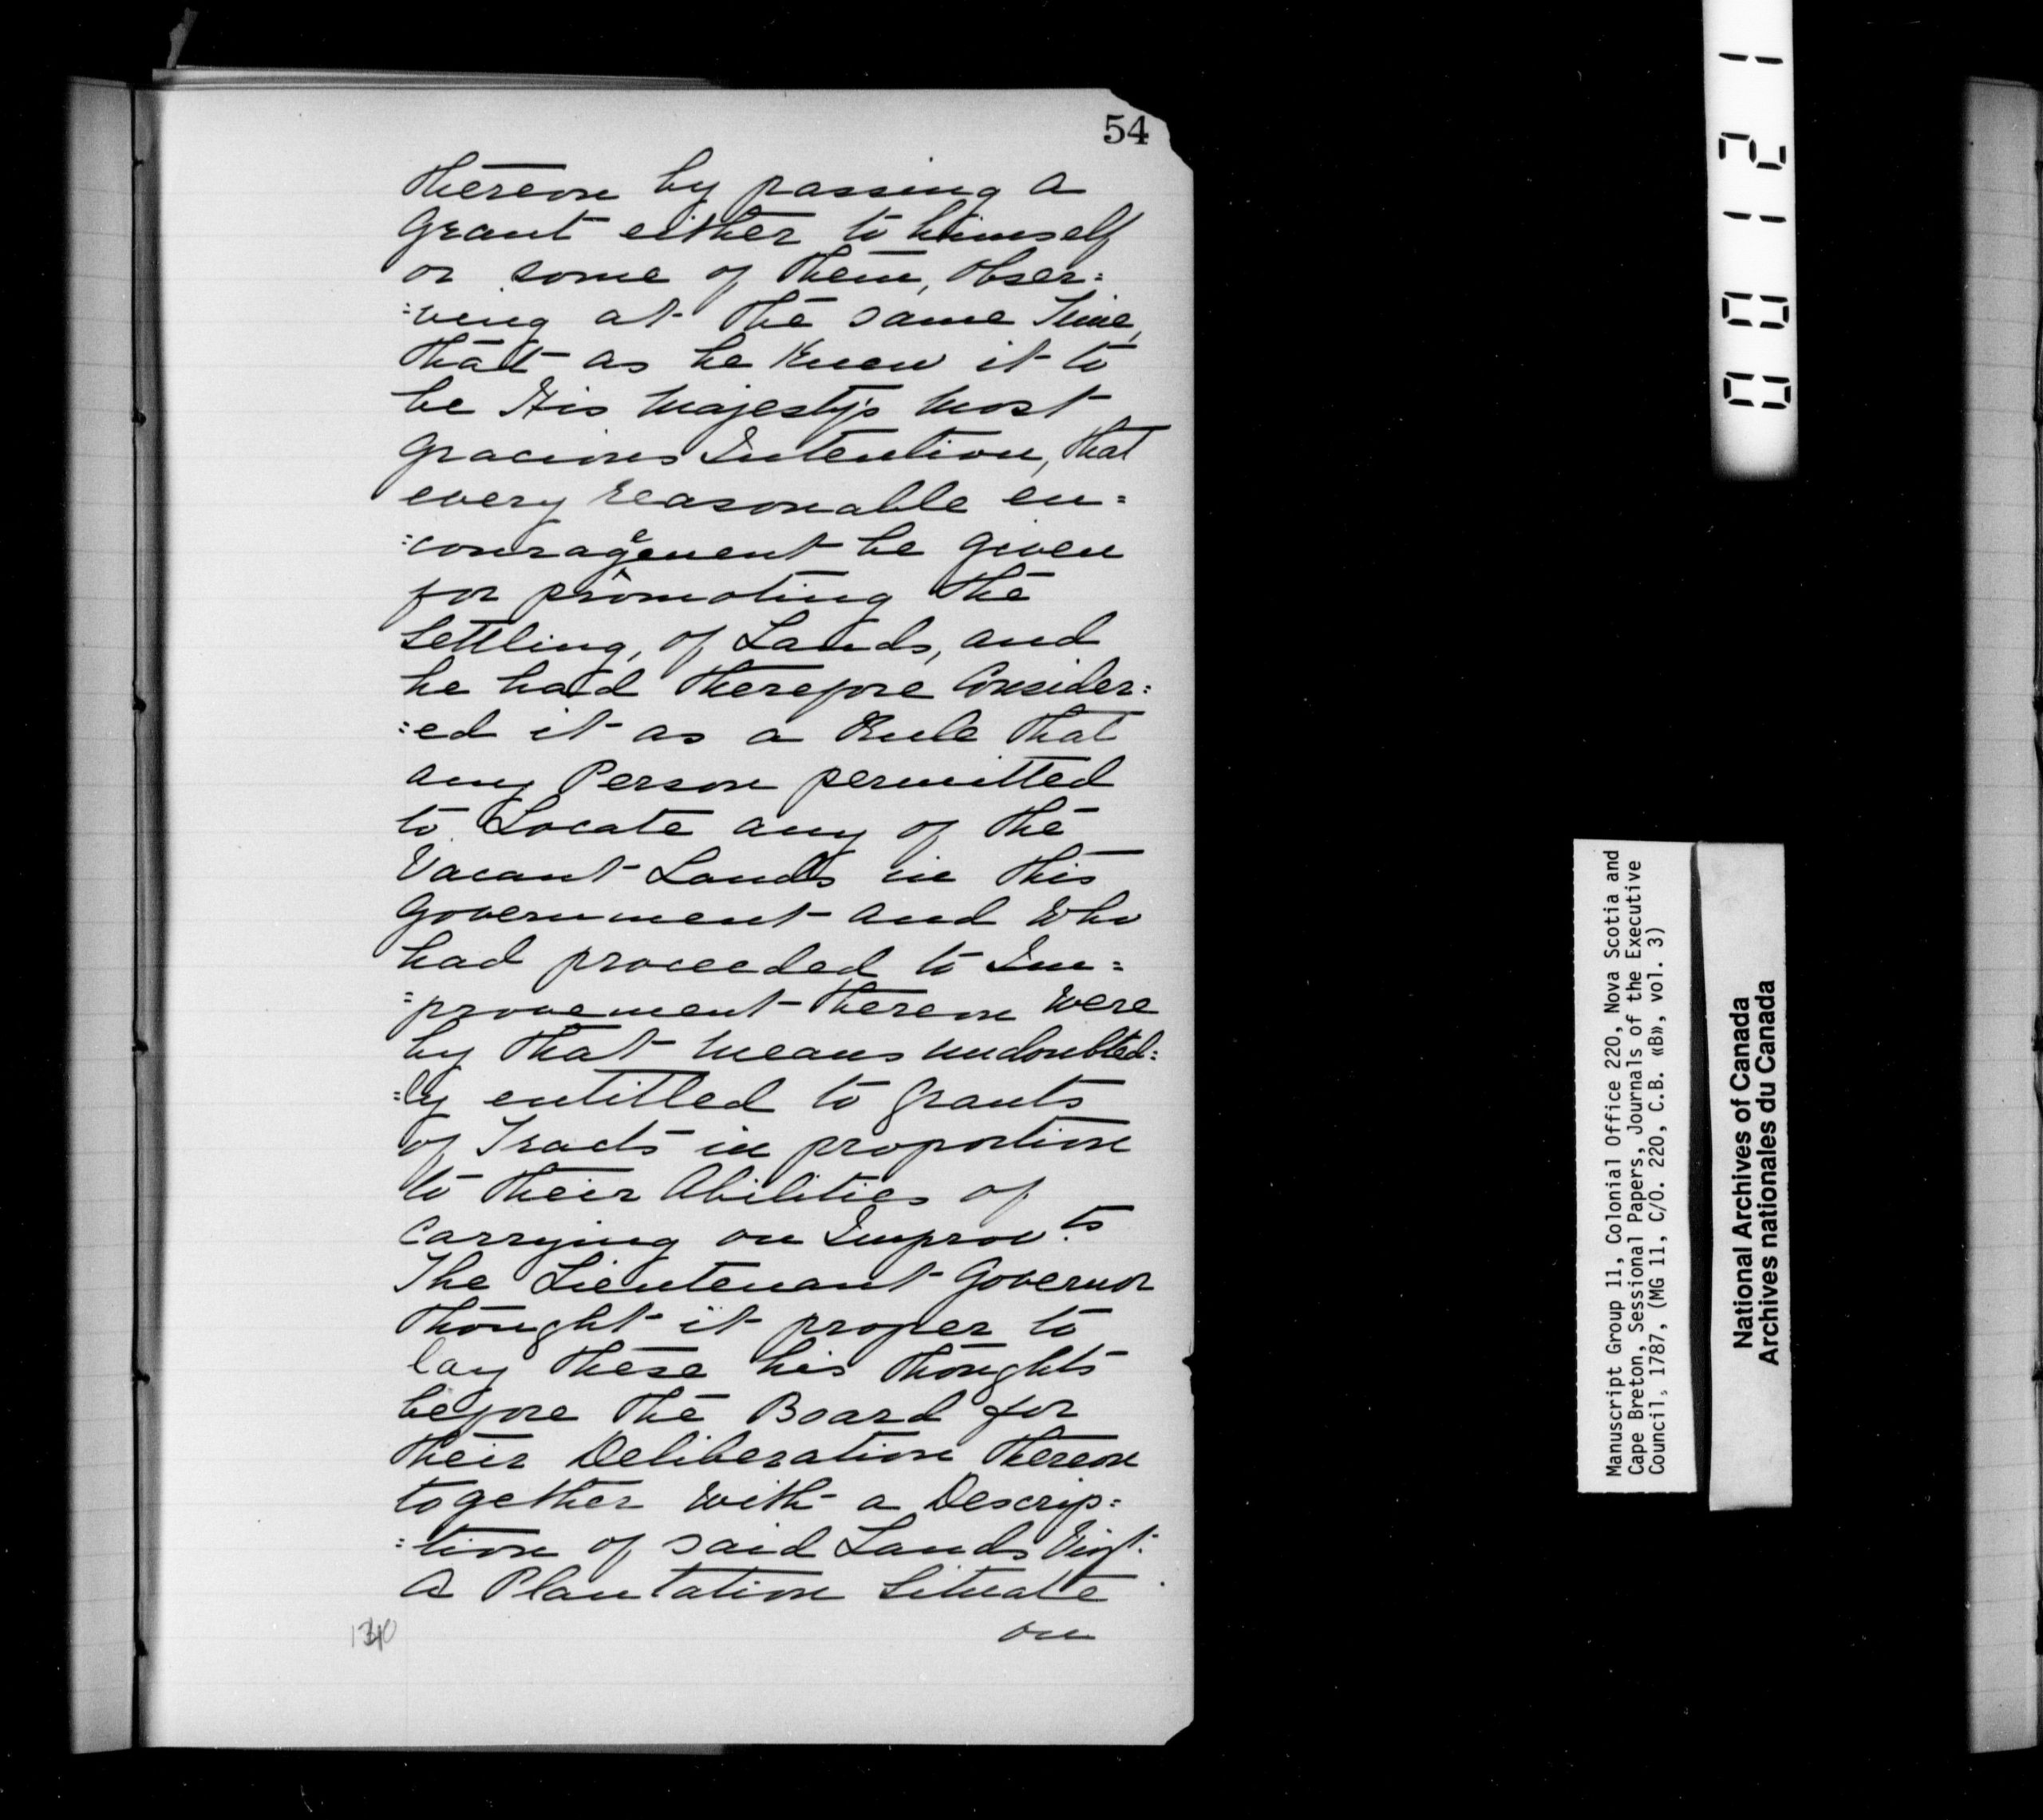 54
thereon by passing a
Grant either to himself
or some of them, obser=
=ving at the same Time,
that as he knew it to
be His Majesty's most
Gracious Intention, that
every reasonable en=
=couragement be given
for promoting the
Settling, of Lands, and
he had therefore Consider=
=ed it as a Rule that
any Person permitted
to Locate any of the
Vacant Lands in this
Government and Who
had proceeded to Im=
=provement thereon were
by that means undoubted=
=ly entitled to Grants
of Tracts in proportion
to their Abilities of
Carrying on Improv.ts
The Lieutenant Governor
thought it proper to
lay these his thoughts
before the Board for
their Deliberation thereon
together with a Descrip=
=tion of said Lands Vizt.
A Plantation Situate
on
00121
Manuscript Group 11, Colonial Office 220, Nova Scotia and
Cape Breton, Sessional Papers, Journals of the Executive
Council, 1787, (MG 11, C/O. 220, C.B. «B», vol. 3)
National Archives of Canada
Archives nationales du Canada